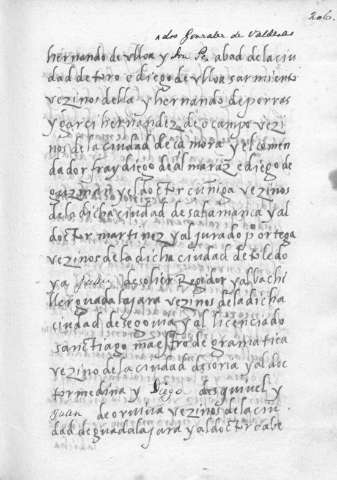 206.
a don Gonzalez de Valderas
hernando de ulloa y Juan Ps abad de la ciu
dad de toro e diego de ulloa sarmiento
vezinos della y hernando de porras
y garci hernandez de ocampo vezi
nos de la ciudad de çamora y el comen
dador fray diego de almaraz e diego de
guzman y el doctor çuñiga vezinos
de la dicha ciudad de salamanca y al
doctor martinez y al jurado p ortega
vezinos de la dicha ciudad de toledo
y a Juan de solier Regidor y al bachi
ller guadalajara vezinos de la dicha
ciudad de segovia y al licenciado
sanctiago maestro de gramatica
vezino de la ciudad de soria y al doc
tor medina y Diego de esquivel y
Juan de orvina vezinos de la ciu
dad de guadalajara y al doctor cabe